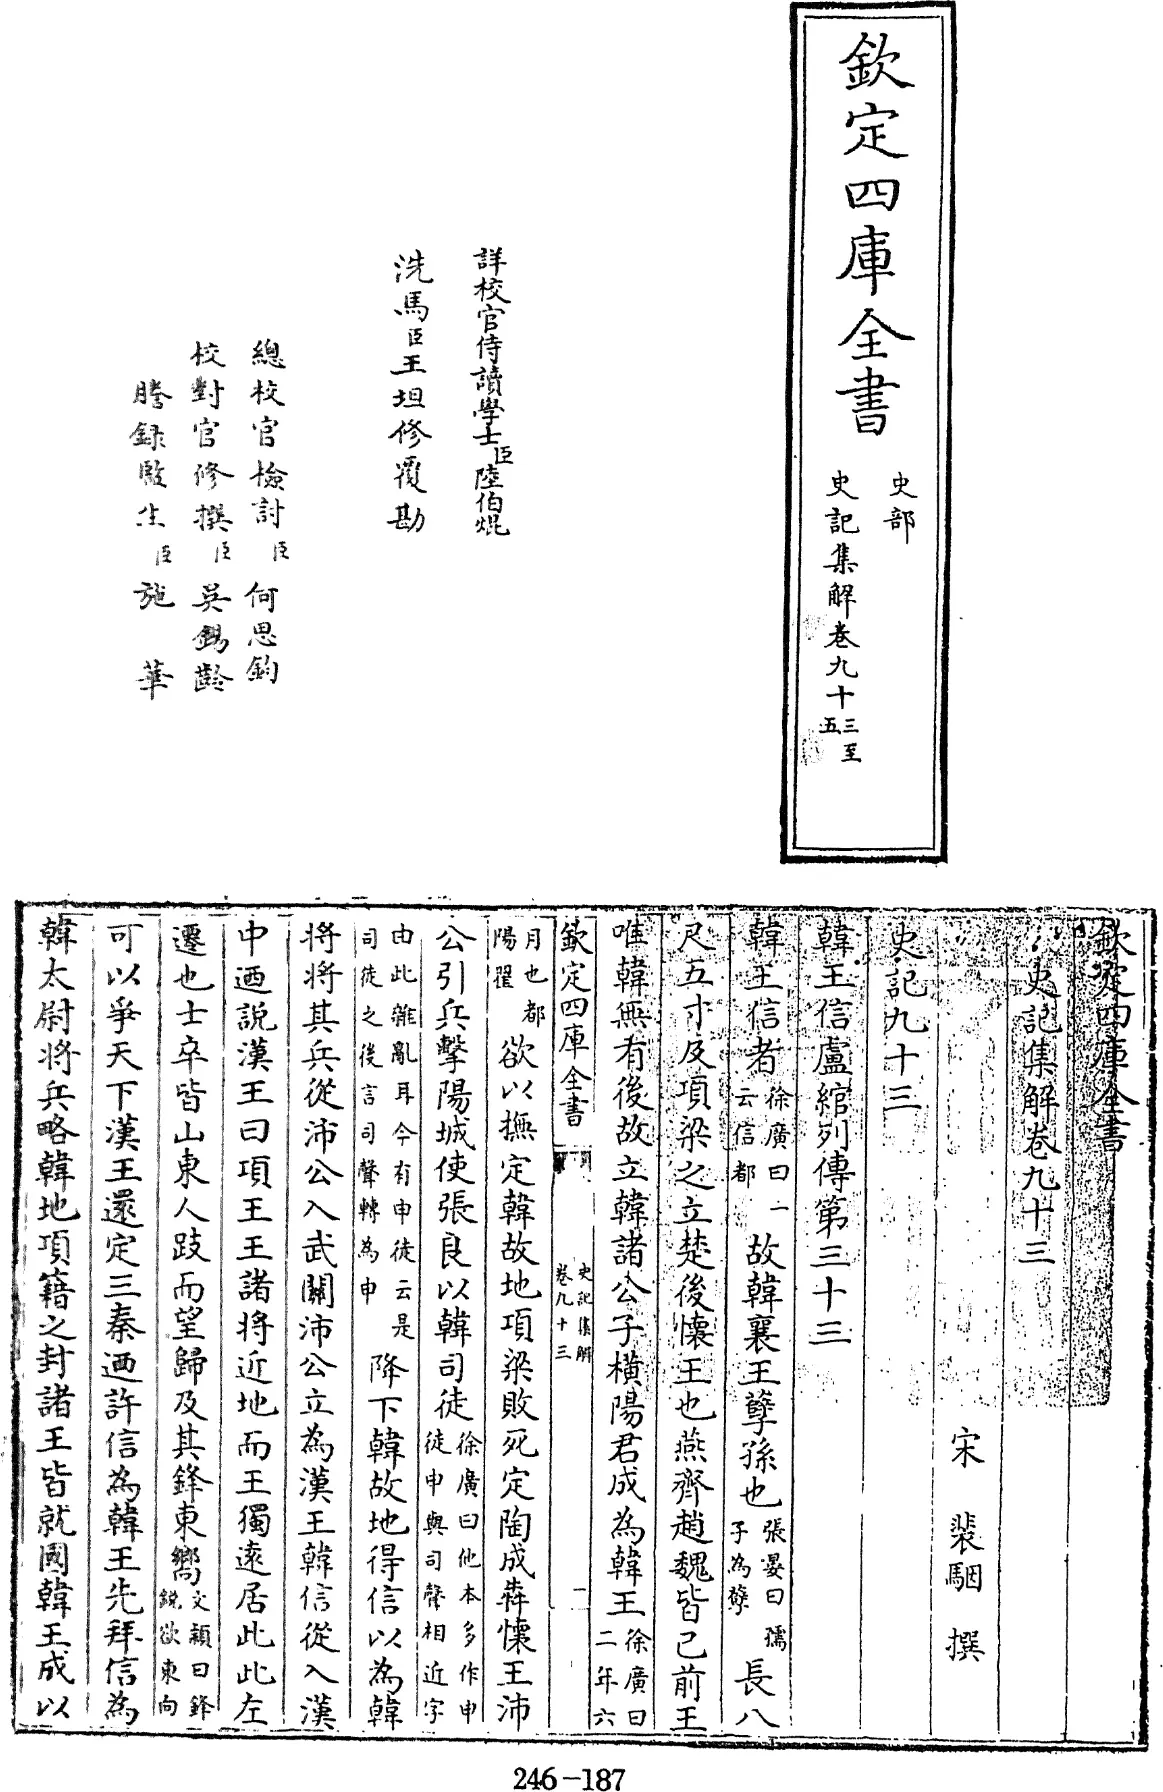 欽定四庫全書
史部
史記集解卷九十三至五
詳校官侍讀學士臣陸伯焜
洗馬臣王坦修覆勘
總校官檢討臣何思鈞
校對官修撰臣吳錫齡
謄錄監生臣施華
欽定四庫全書
史記集解卷九十三
宋 裴駰 撰
史記九十三
韓王信盧綰列傳第三十三
韓王信者徐廣曰一云信都故韓襄王孽孫也張晏曰孺子為孽長八
尺五寸及項梁之立楚後懷王也燕齊趙魏皆已前王
唯韓無有後故立韓諸公子橫陽君成為韓王徐廣曰二年六
欽定四庫全書 史記集解卷九十三 一
月也都陽翟欲以撫定韓故地項梁敗死定陶成犇懷王沛
公引兵擊陽城使張良以韓司徒徐廣曰他本多作申徒申與司聲相近字
由此雜亂耳今有申徒云是司徒之後言司聲轉為申降下韓故地得信以為韓
將將其兵從沛公入武關沛公立為漢王韓信從入漢
中迺說漢王曰項王王諸將近地而王獨遠居此此左
遷也士卒皆山東人跂而望歸及其鋒東嚮文穎曰鋒銳欲東向
可以爭天下漢王還定三秦迺許信為韓王先拜信為
韓太尉將兵略韓地項籍之封諸王皆就國韓王成以
246-187